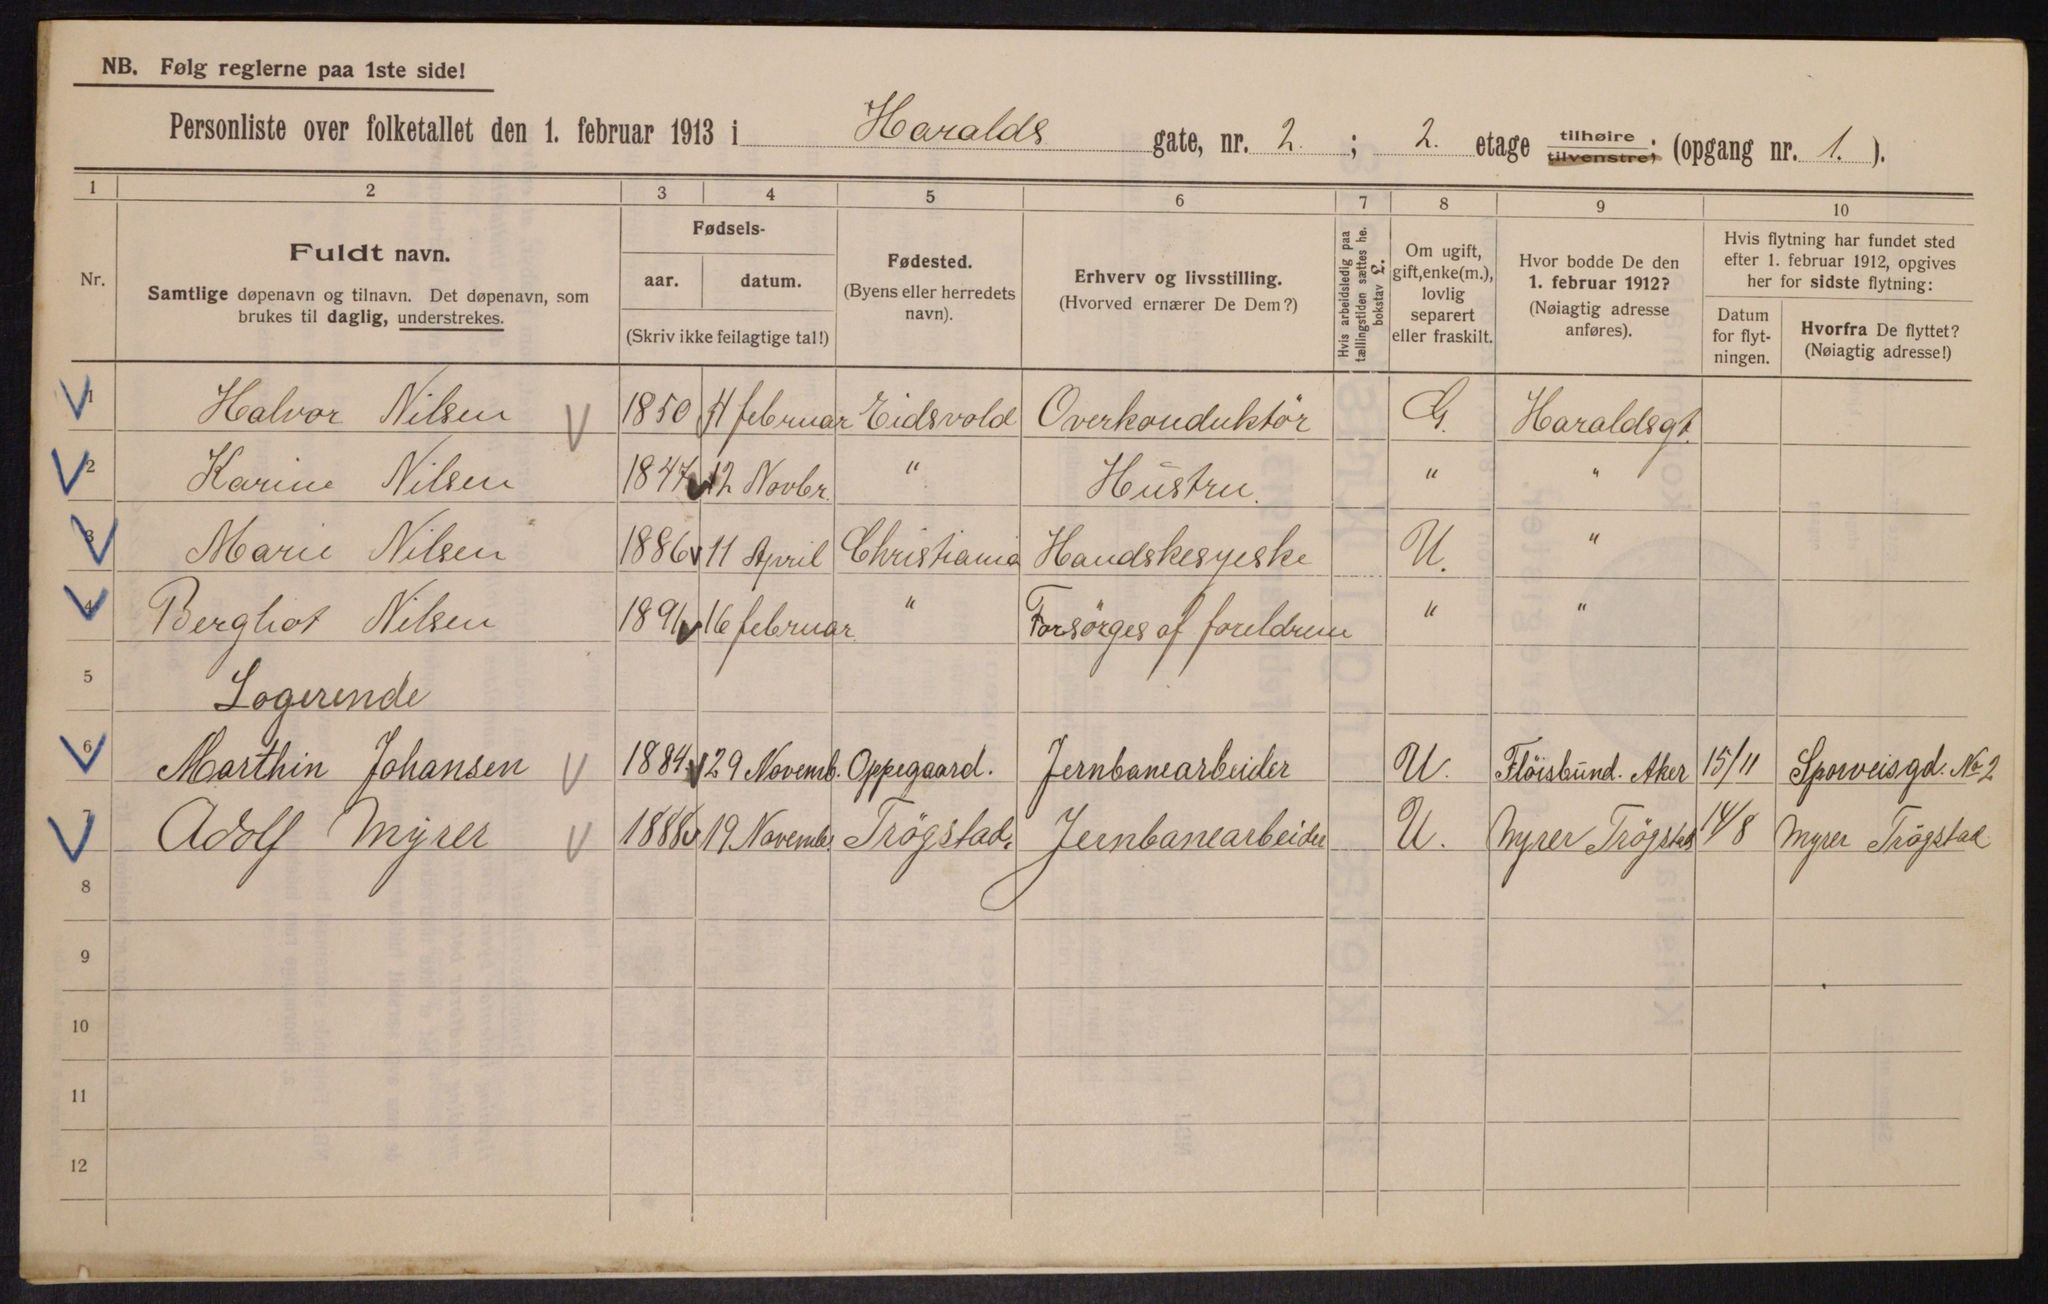 NB. Følg reglerne paa 1ste side!
Personliste over folketallet den 1. februar 1913 i Haralds gate, nr. 2 ; 2. etage tilhøire tilvenstre; (opgang nr. 1. ).
1 2 3 4 5 6 7 8 9 10
Nr.
Fuldt navn.
Samtlige døpenavn og tilnavn. Det døpenavn, som
brukes til daglig, understrekes.
Fødsels-
aar. datum.
(Skriv ikke feilagtige tal!)
Fødested.
(Byens eller herredets
navn).
Erhverv og livsstilling.
(Hvorved ernærer De Dem?)
Hvis arbeidsledig paa
tællingstiden sættes he.
bokstav L.
Om ugift,
gift, enke(m.),
lovlig
separert
eller fraskilt.
Hvor bodde De den
1. februar 1912?
(Nøiagtig adresse
anføres).
Hvis flytning har fundet sted
efter 1. februar 1912, opgives
her for sidste flytning:
Datum
for flyt-
ningen.
Hvorfra De flyttet?
(Nøiagtig adresse!)
1 Halvor Nilsen 1850 februar Eidsvold Overkonduktör G. Haraldsgt.
2 Karine Nilsen 1847 12 Novbr. " Hustru. " "
3 Marie Nilsen 1886 11 April Christiania Handskesyeske U. "
4 Bergliot Nilsen 1891 16 februar " Forsörges af foreldrene " "
5 Logerende
6 Marthin Johansen 1884 29 Novemb. Oppegaard. Jernbanearbeider U. Flöisbund. Aker 15/11 Sporveisgd. No 2
7 Adolf Myrer 1886 19 Novembr. Trögstad. Jernbanearbeider U. Myrer Trögstad 14/8 Myrer Trögstad
8
9
10
11
12